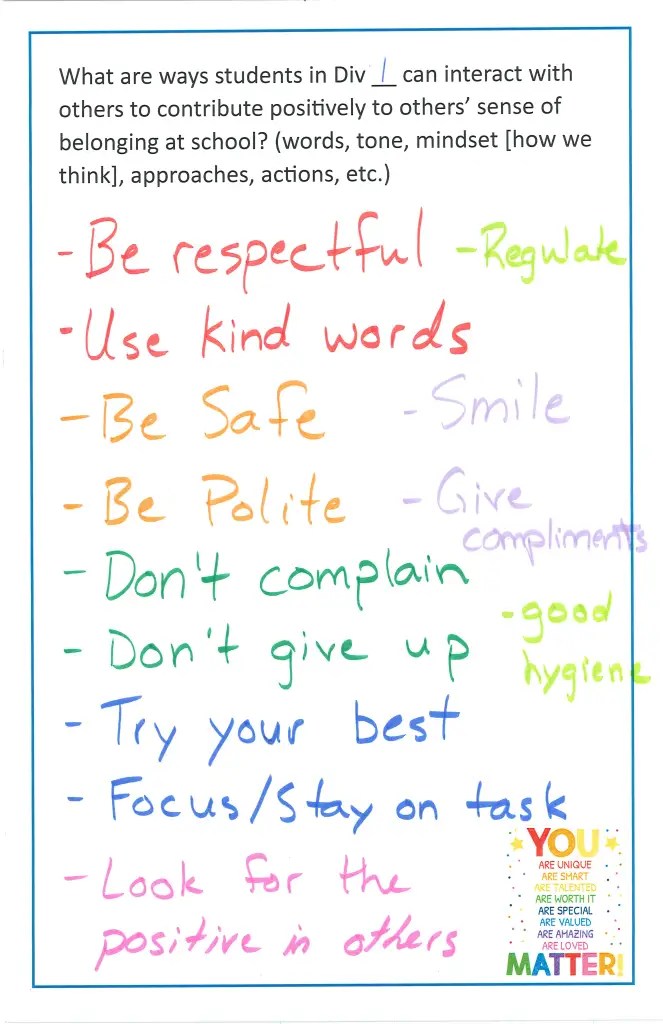 What are ways students in Div 1 can interact with
others to contribute positively to others’ sense of
belonging at school? (words, tone, mindset [how we
think], approaches, actions, etc.)
- Be respectful
- Regulate
- Use kind words
- Be Safe
- Smile
- Be Polite
- Give
compliments
- Don't complain
- good
hygiene
- Don't give up
- Try your best
- Focus/Stay on task
- Look for the
positive in others
YOU
ARE UNIQUE
ARE SMART
ARE TALENTED
ARE WORTH IT
ARE SPECIAL
ARE VALUED
ARE AMAZING
ARE LOVED
MATTER!